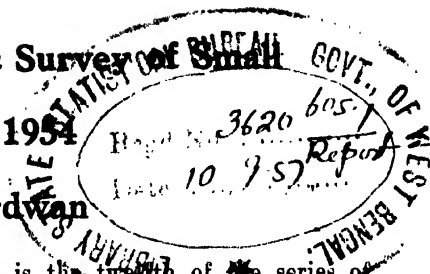 Survey of Small
1954
rdwan
is the twelfth of the series of
STATE STATISTICAL BUREAU GOVT., OF WEST BENGAL.
LIBRARY
3620 605.1
Report
Date 10 9 57